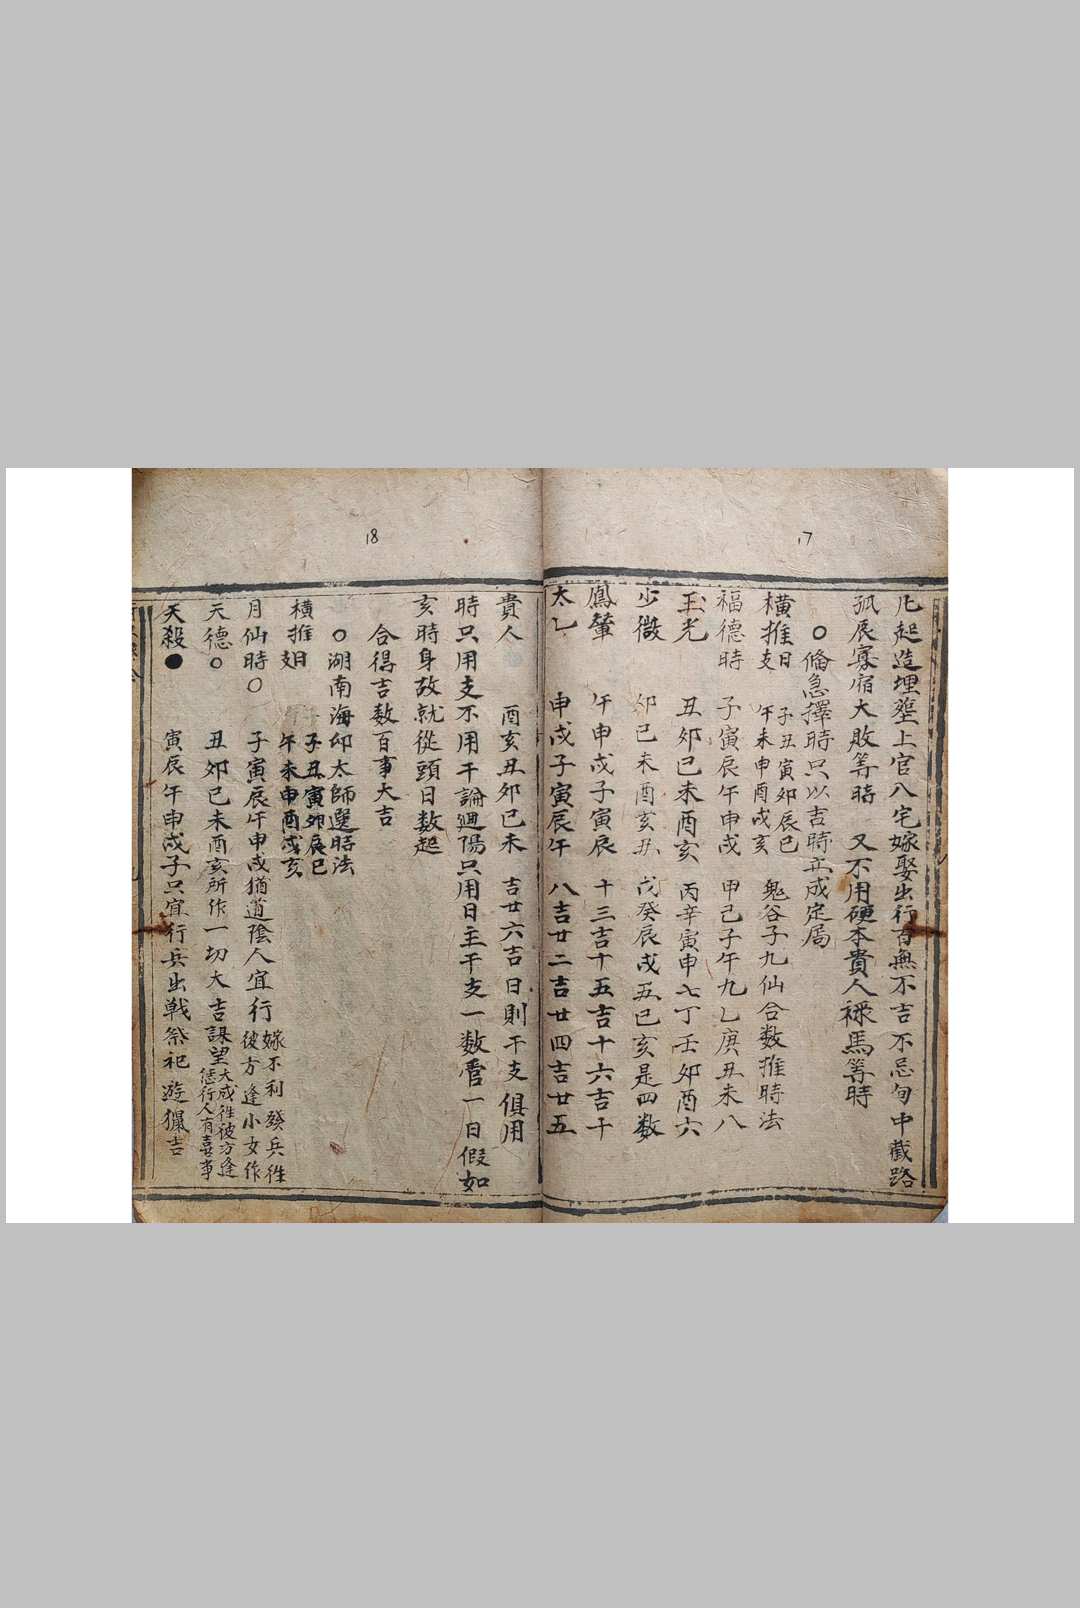 17
凡起造埋塟上官入宅嫁娶出行百無不吉不忌旬中截路
孤辰寡宿大敗等時 又不用硬本貴人祿馬等時
○俻急擇時只以吉時正成定局
橫推支日 子丑寅卯辰巳 午未申酉戌亥 鬼谷子九仙合数推時法
福德時 子寅辰午申戌 甲己子午九乙庚丑未八
玉光 丑卯巳未酉亥 丙辛寅申七丁壬卯酉六
少微 卯巳未酉亥丑 戊癸辰戌五巳亥是四数
鳳輦 午申戌子寅辰 十三吉十五吉十六吉十
太乙 申戌子寅辰午 八吉廿二吉廿四吉廿五
18
貴人 酉亥丑卯巳未 吉廿六吉日則干支俱用
時只用支不用干論迴陽只用日主干支一数管一日假如
亥時身故就從頭日数起
合得吉数百事大吉
○湖南海卯太師選時法
橫推支日 子丑寅卯辰巳 午未申酉戌亥
月仙時○ 子寅辰午申戌猶道陰人宜行嫁不利發兵徃彼方逢小女作
天德○ 丑卯巳未酉亥所作一切大吉謀望大成徃彼方逢憑行人有喜事
天殺● 寅辰午申戌子只宜行兵出戦祭祀遊獵吉